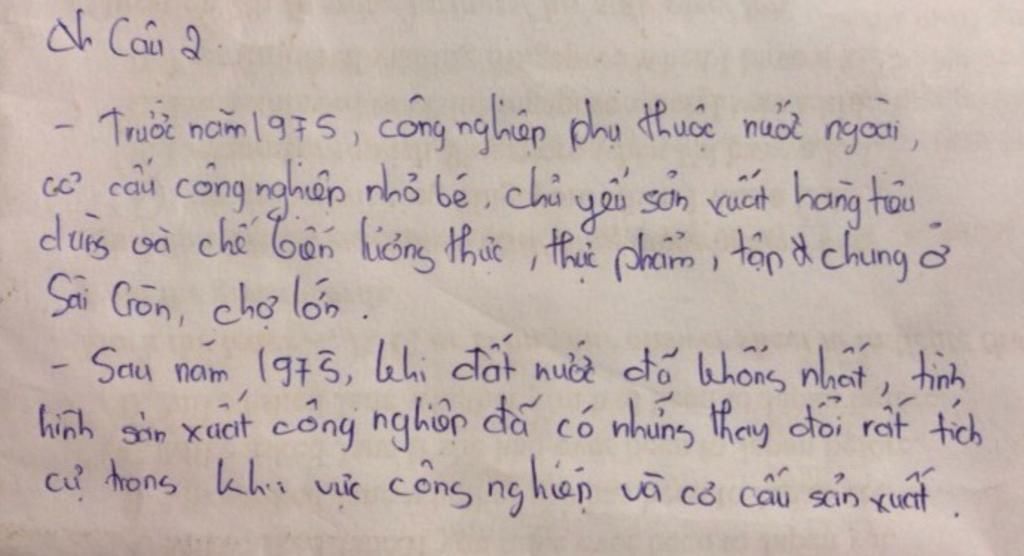 Câu 2
- Trước năm 1975, công nghiệp phụ thuộc nước ngoài,
cơ cấu công nghiệp nhỏ bé, chủ yếu sản xuất hàng tiêu
dùng và chế biến lương thực, thực phẩm, tập chung ở
Sài Gòn, chợ lớn.
- Sau nam 1975, khi đất nước đã không nhất, tình
hình sản xuất công nghiệp đã có những thay đổi rất tích
cự trong khi vực công nghiệp và cơ cấu sản xuất.